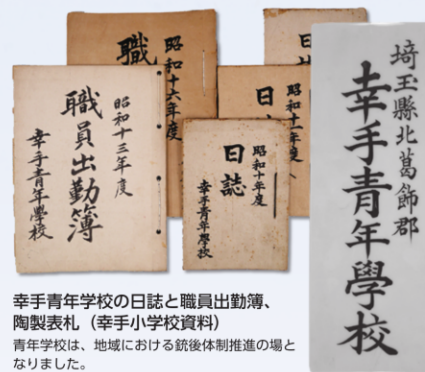 職
昭和十六年度
日
昭和十一年度
日
昭和十三年度
職員出勤簿
幸手青年學校
昭和十年度
日誌
幸手青年學校
埼玉縣北葛飾郡
幸手青年學校
幸手青年学校の日誌と職員出勤簿、
陶製表札（幸手小学校資料）
青年学校は、地域における銃後体制推進の場と
なりました。